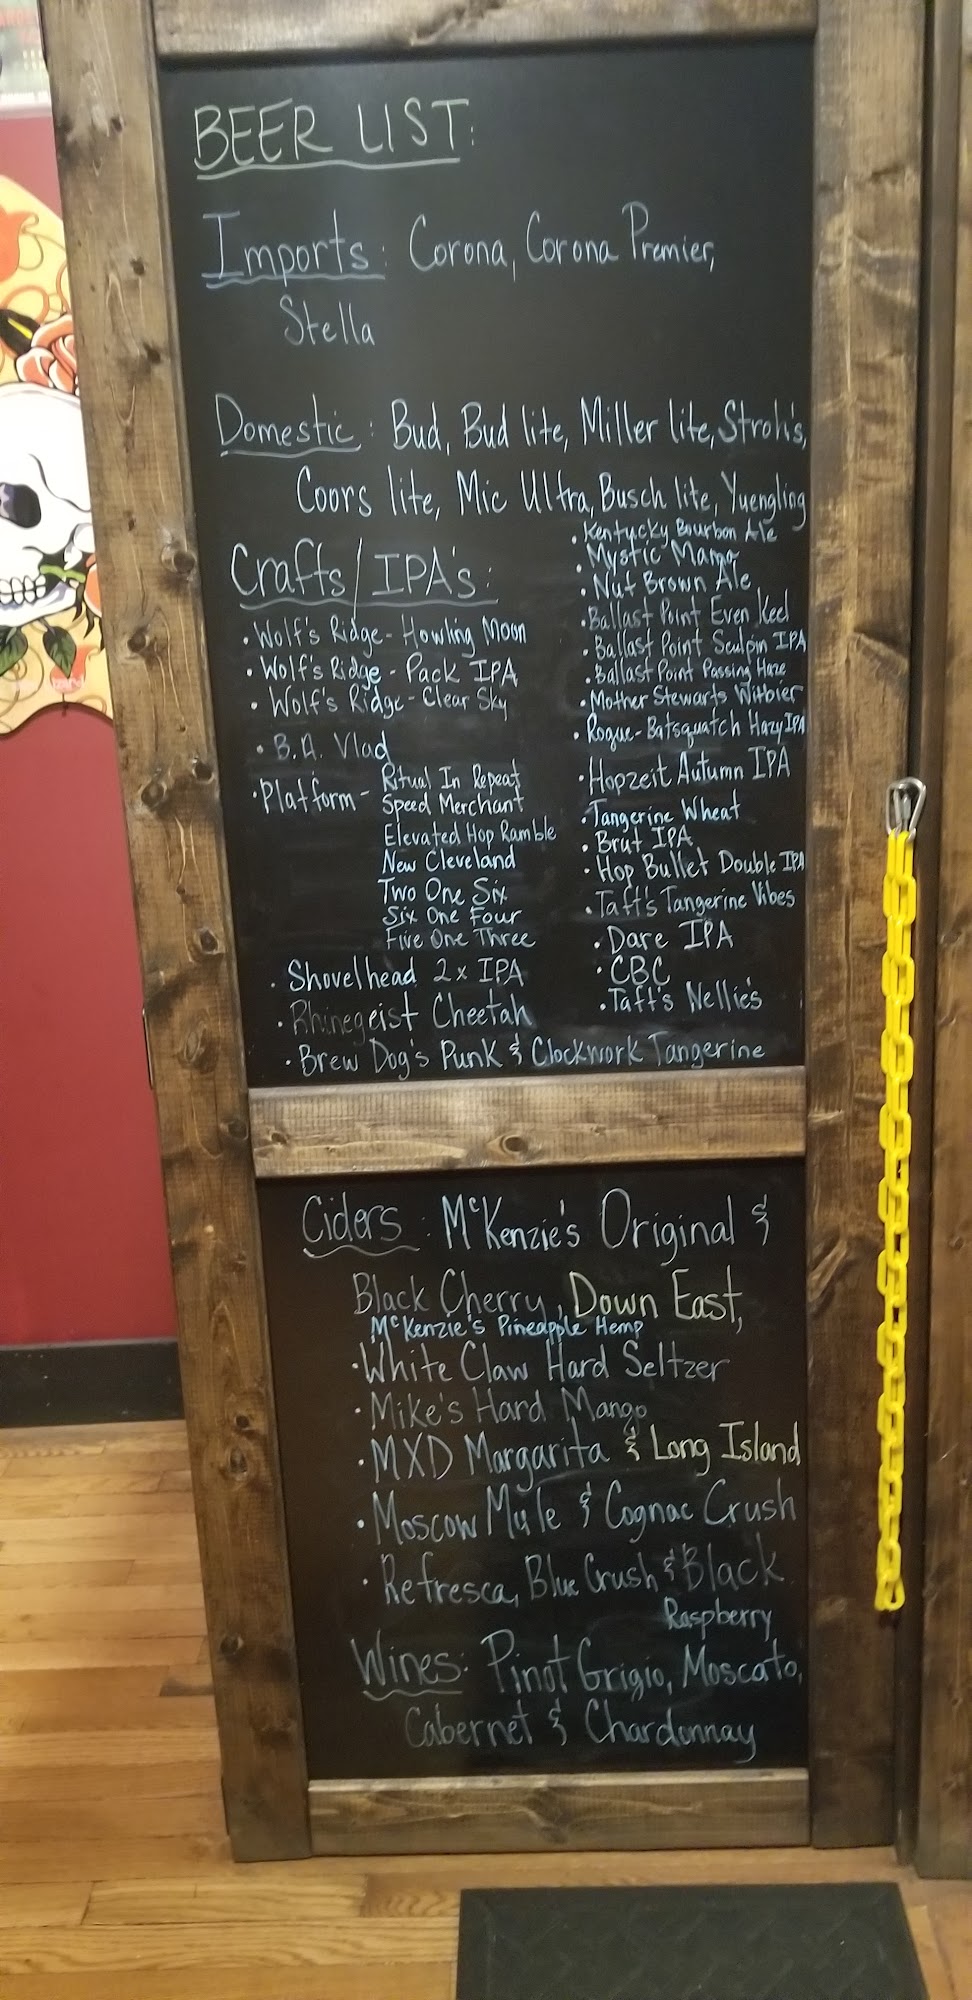 BEER LIST:
Imports: Corona, Corona Premier,
Stella
Domestic: Bud, Bud lite, Miller lite, Stroh's,
Coors lite, Mic Ultra, Busch lite, Yuengling
Crafts/IPA's:
• Wolf's Ridge - Howling Moon
• Wolf's Ridge - Pack IPA
• Wolf's Ridge - Clear Sky
• B.A. Vlad
• Platform - Ritual In Repeat
Speed Merchant
Elevated Hop Ramble
New Cleveland
Two One Six
Six One Four
Five One Three
• Shovelhead 2x IPA
• Rhinegeist Cheetah
• Brew Dog's Punk & Clockwork Tangerine
• Kentucky Bourbon Ale
• Mystic Mama
• Nut Brown Ale
• Ballast Point Even Keel
• Ballast Point Sculpin IPA
• Ballast Point Passing Haze
• Mother Stewarts Witbier
• Rogue - Batsquatch Hazy IPA
• Hopzeit Autumn IPA
• Tangerine Wheat
• Brut IPA
• Hop Bullet Double IPA
• Taft's Tangerine Vibes
• Dare IPA
• CBC
• Taft's Nellie's
Ciders: McKenzie's Original &
Black Cherry, Down East,
McKenzie's Pineapple Hemp
• White Claw Hard Seltzer
• Mike's Hard Mango
• MXD Margarita & Long Island
• Moscow Mule & Cognac Crush
• Refresca, Blue Crush & Black
Raspberry
Wines: Pinot Grigio, Moscato,
Cabernet & Chardonnay